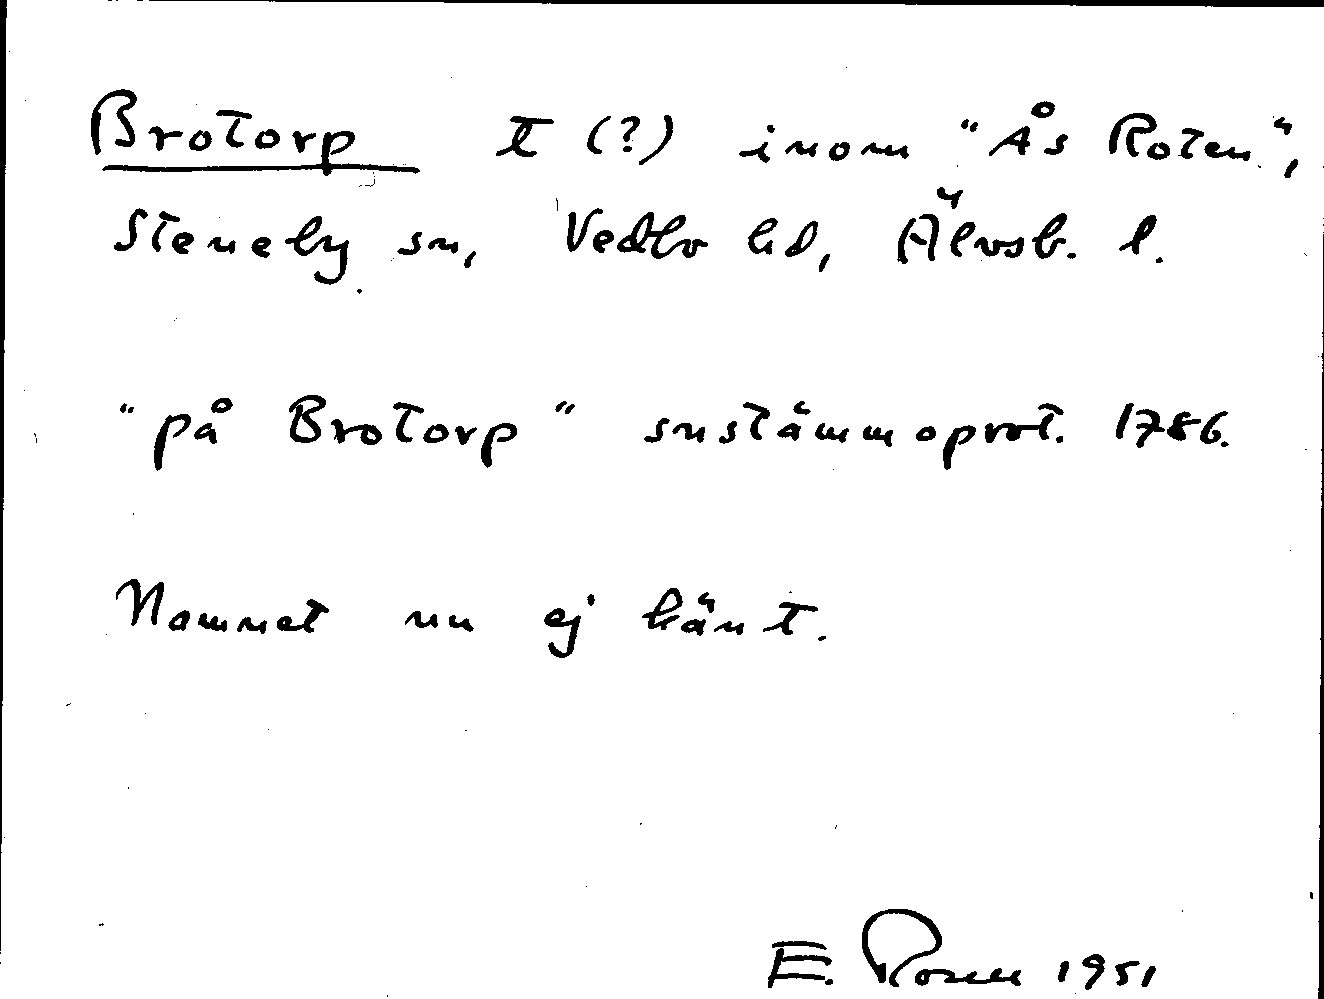 Brotorp t (?) inom "Ås Roten",
Steneby sn, Vedbo hd, Älvsb. l.
"på Brotorp" snstämmoprot. 1786.
Namnet nu ej känt.
E. Rosen 1951